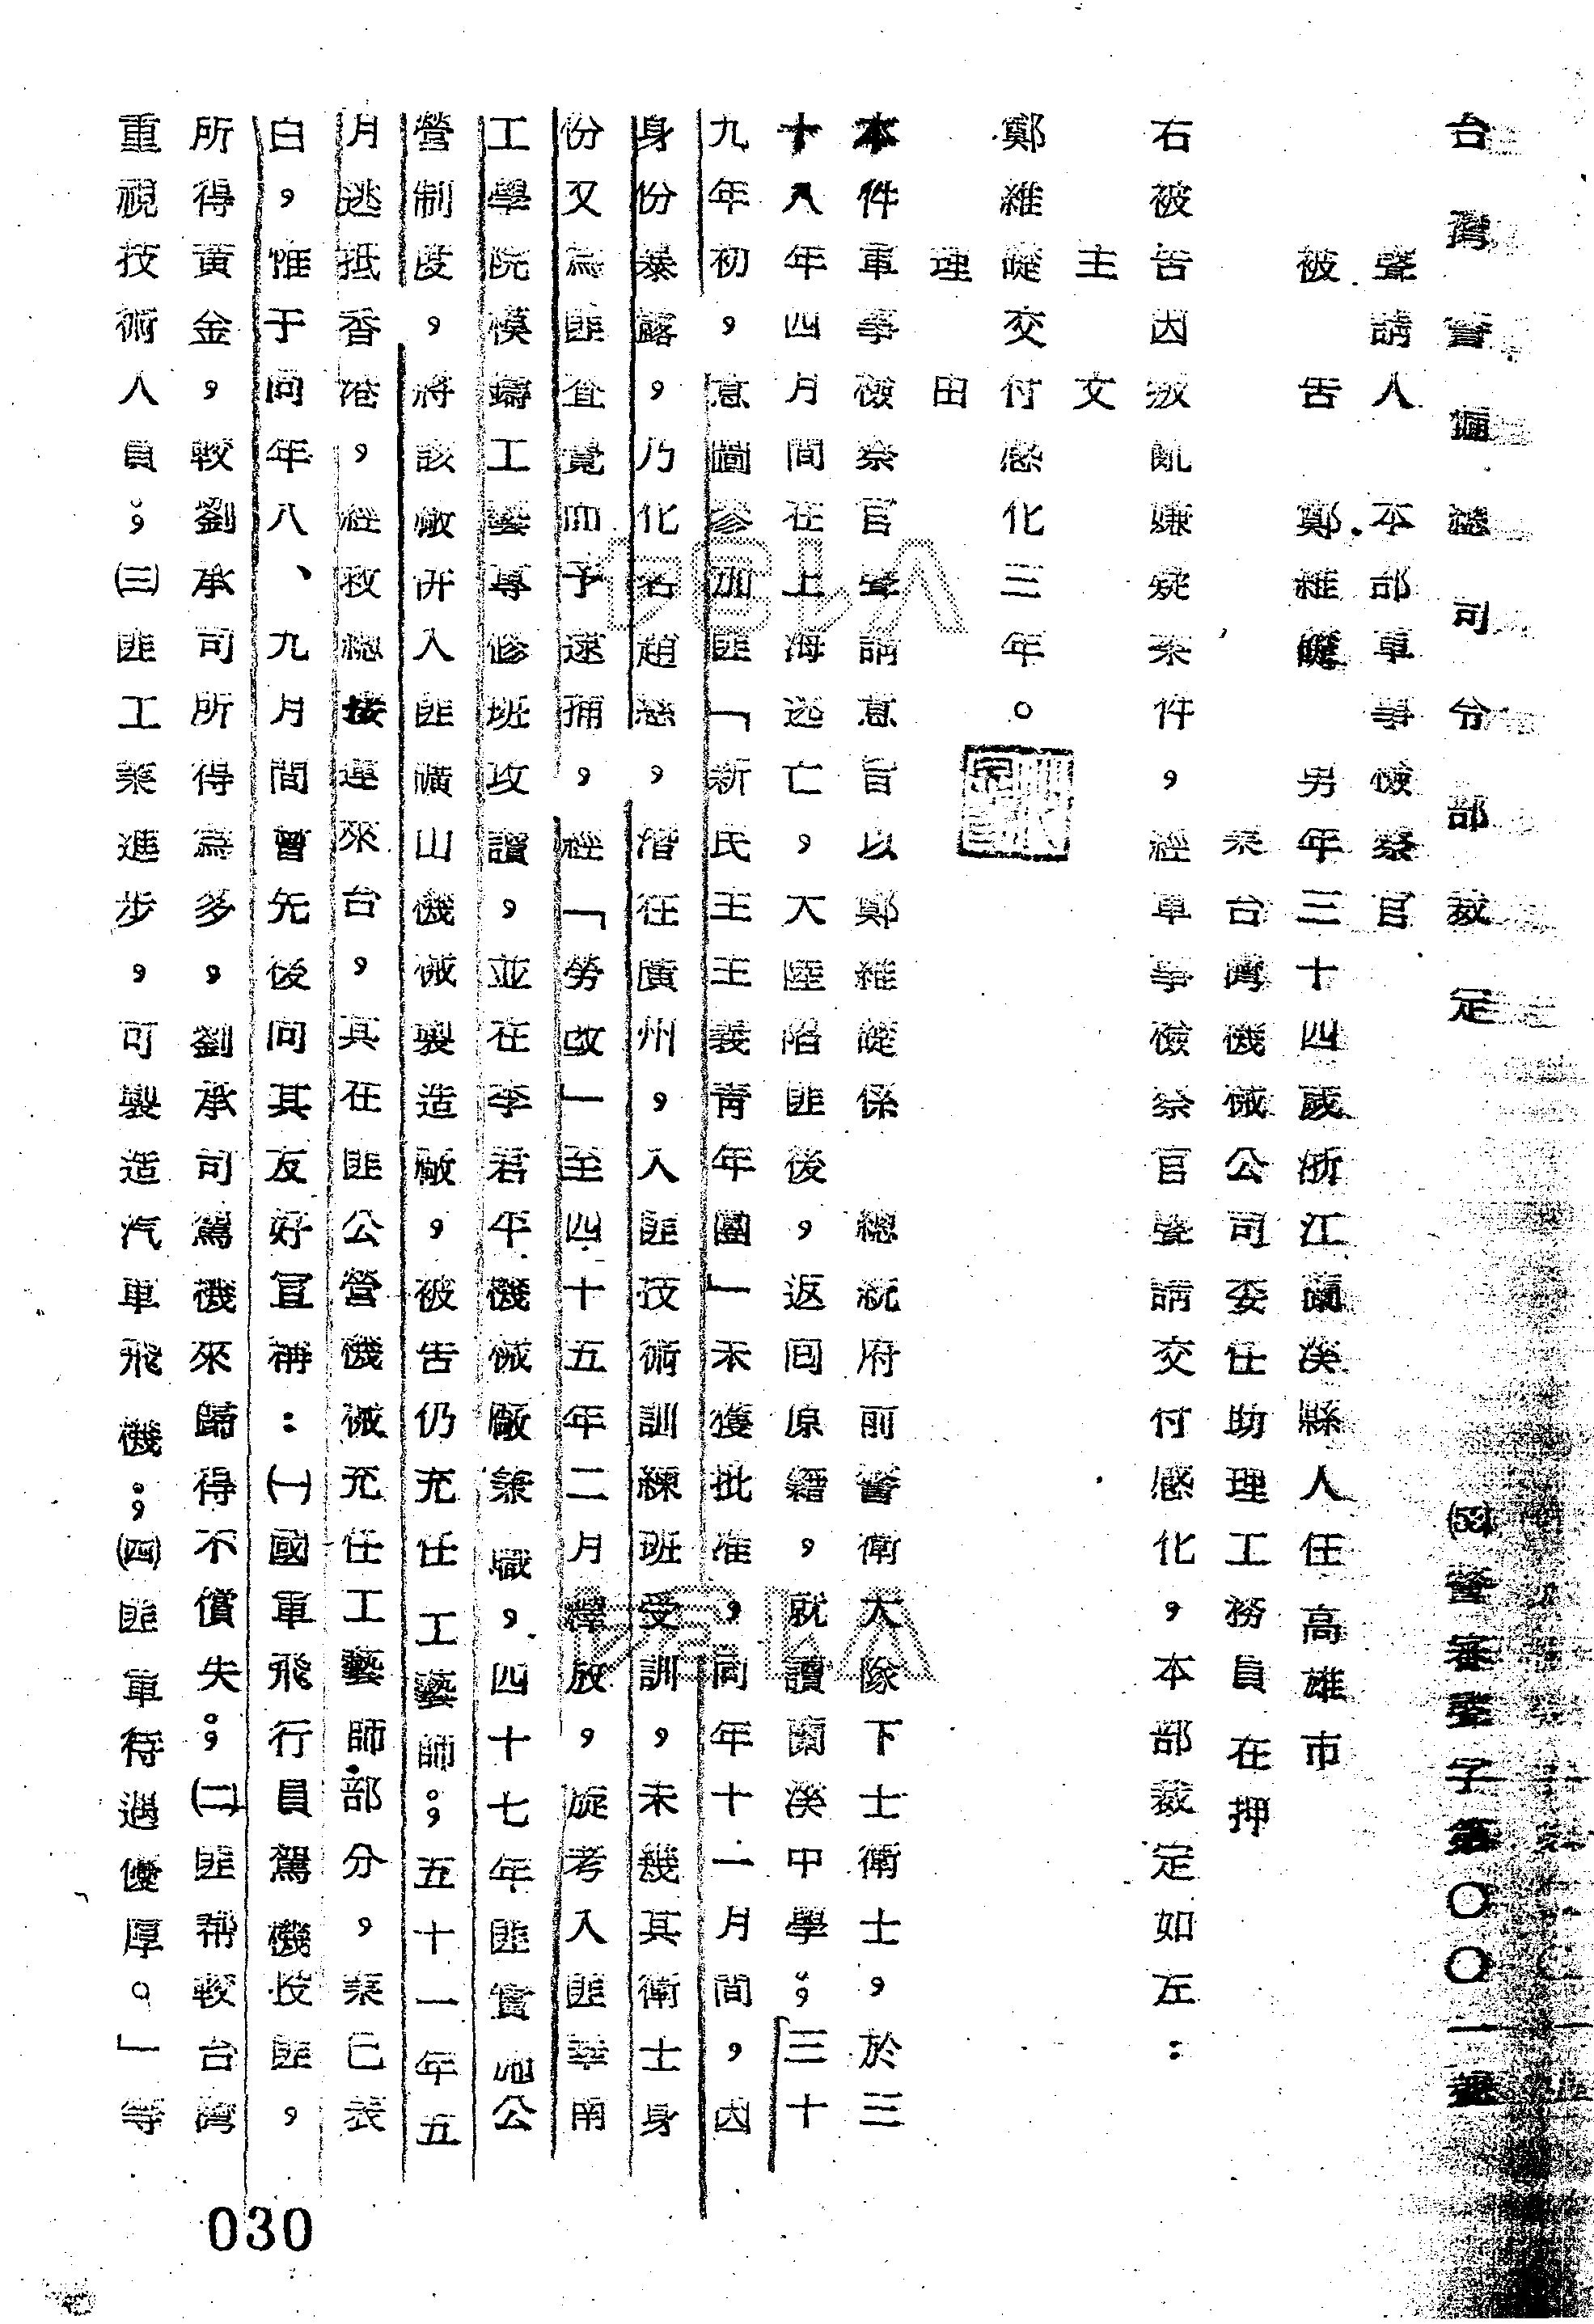 台灣警備總司令部裁定　(53)警審聲字第〇〇一號
聲請人　本部軍事檢察官
被告　鄭維𡹘　男年三十四歲浙江蘭溪縣人任高雄市
業台灣機械公司委任助理工務員在押
右被告因叛亂嫌疑案件，經軍事檢察官聲請交付感化，本部裁定如左：
主文
鄭維交付感化三年。
理由
本件軍事檢察官聲請意旨以鄭維係　總統府前警衛大隊下士衛士，於三
十八年四月間在上海逃亡，大陸陷匪後，返回原籍，就讀蘭溪中學；三十
九年初，意圖參加匪「新民主主義青年團」未獲批准，同年十一月間，因
身份暴露，乃化名趙懸，潛往廣州，入匪技術訓練班受訓，未幾其衛士身
份又為匪查覺而予逮捕，經「勞改」至四十五年二月釋放，旋考入匪華南
工學院模鑄工藝專修班攻讀，並在李君平機械廠兼職，四十七年匪實施公
營制度，將該廠併入匪礦山機械製造廠，被告仍充任工藝師；五十一年五
月逃抵香港，經救總接運來台，其在匪公營機械充任工藝師部分，業已表
白，惟于同年八、九月間曾先後向其友好宣稱：(一)國軍飛行員駕機投匪，
所得黃金，較劉承司所得為多，劉承司駕機來歸得不償失；(二)匪幣較台灣
重視技術人員；(三)匪工業進步，可製造汽車飛機；(四)匪軍待遇優厚。」等
030